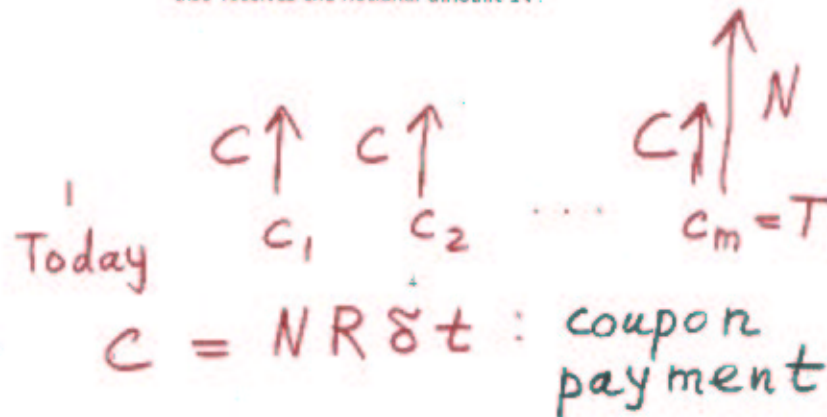 amount
N
C C C
Today c₁ c₂ .... cₘ = T
C = N R δt : coupon
payment